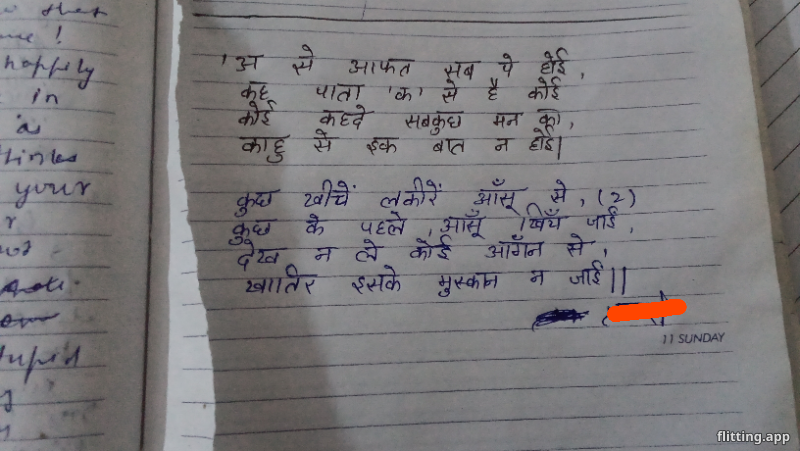 o that
me!
happily
in
a
thinks
your
r
upid
y
'अ से आफत सब पे होई,
कह पाता 'क' से है कोई
कोई कहदे सबकुछ मन का,
काहु से इक बात न होई|
कुछ खीचें लकीरें आँसू से, (2)
कुछ के पहले, आसूँ खिँच जाई,
देख न ले कोई आँगन से,
खातिर इसके मुस्कान न जाई||
11 SUNDAY
flitting.app